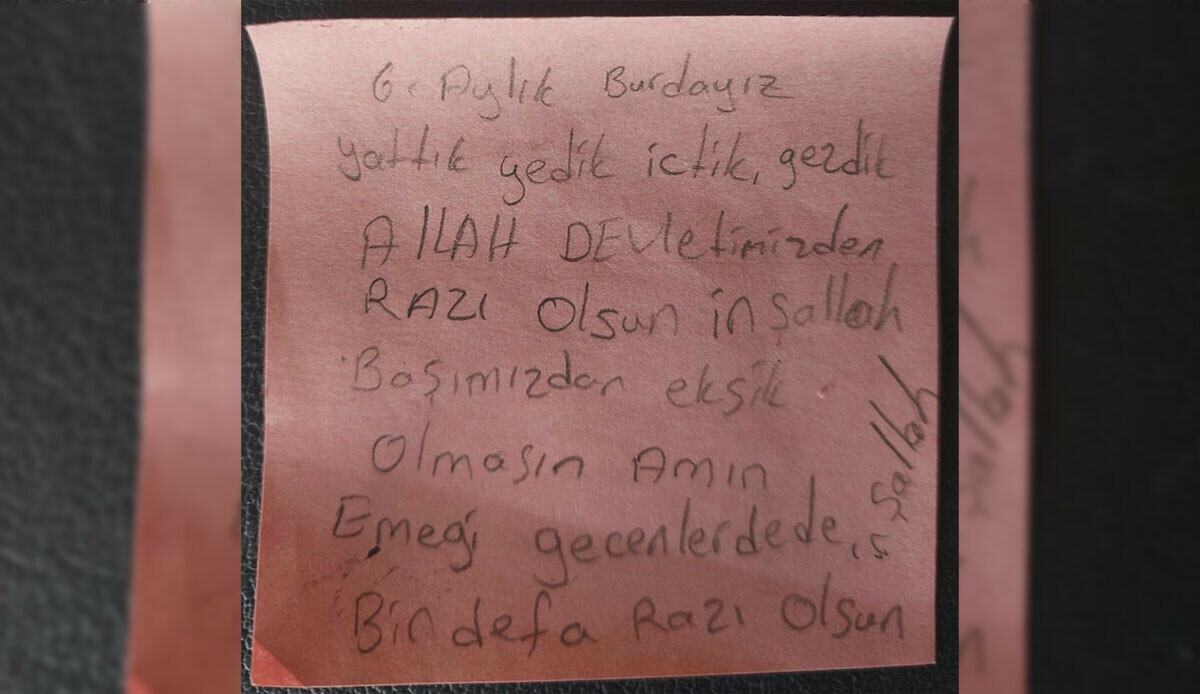 6. Aylık Burdayız
yattık yedik ictik, gezdik
AllAH DEVletimizden
RAZI Olsun inşallah
Başımızdan eksik
Olmasın Amın
Emeği gecenlerdede,
Bin defa Razı Olsun
işallah